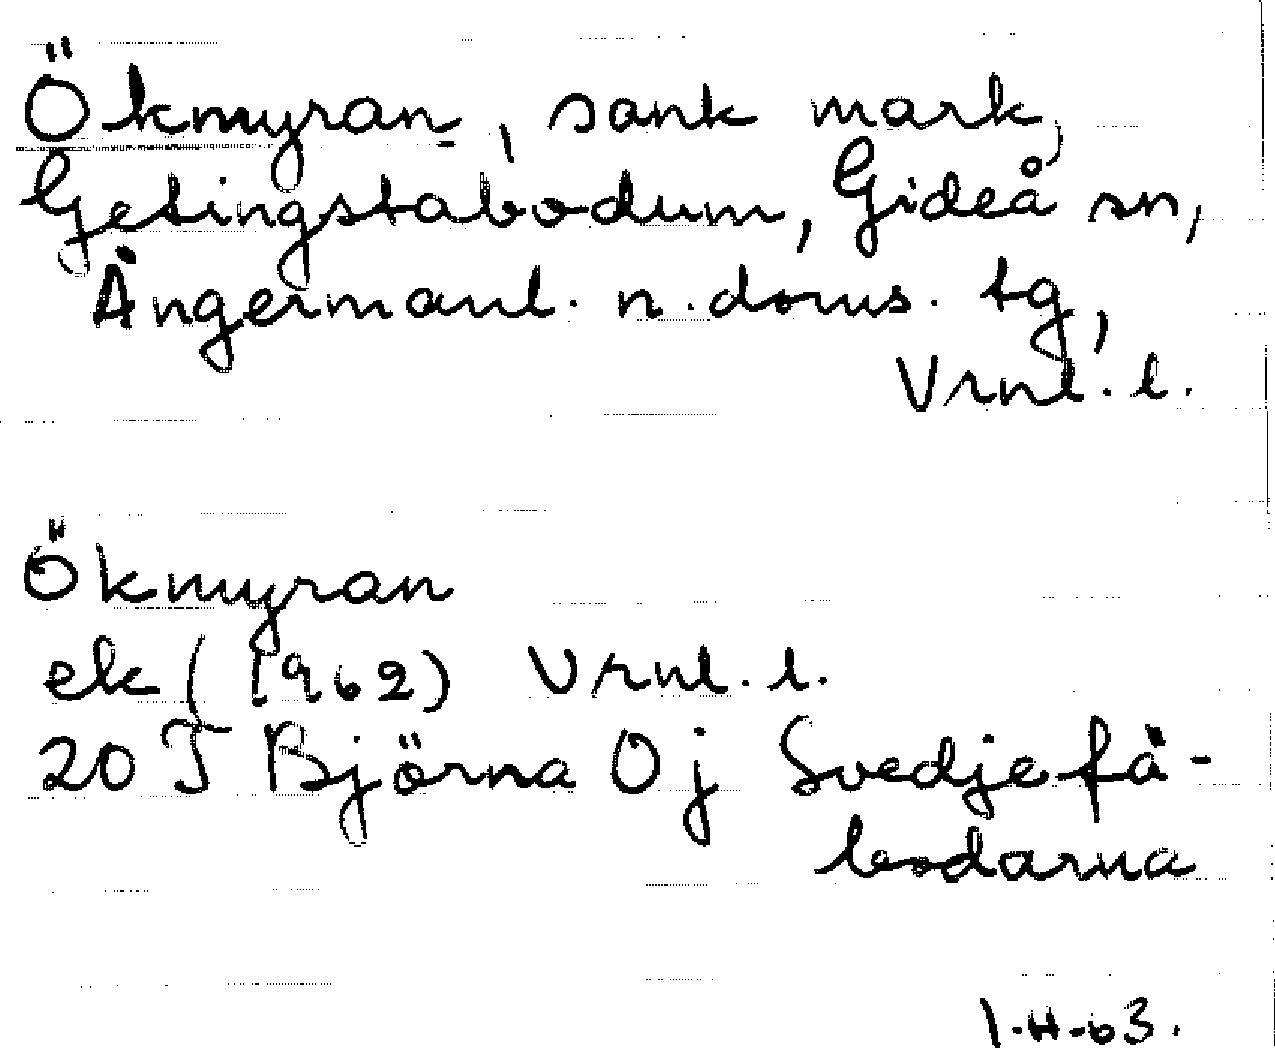 Ökmyran, sank mark,
Getingstabodum, Gideå sn,
Ångermanl. n. doms. tg,
Vrnl. l.
Ökmyran
ek (1962) Vrnl. l.
20 J Björna 0 j Svedjefä-
bodarna
1-H-63.